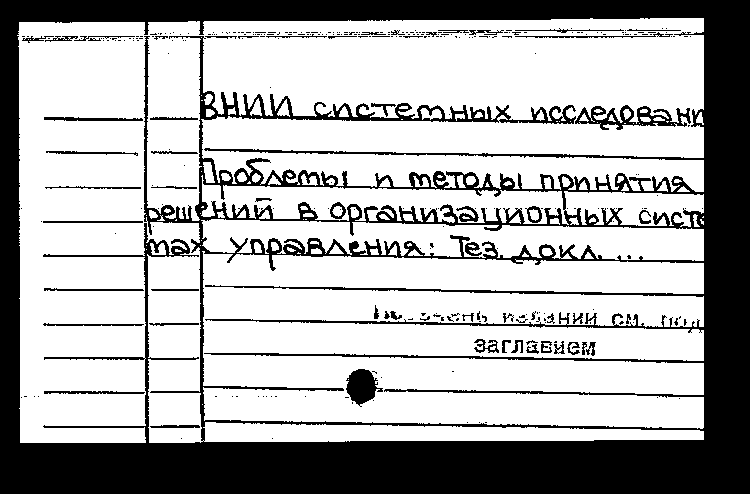 ВНИИ системных исследовани
Проблемы и методы принятия
решений в организационных систе
мах управления: Тез. докл. ...
изданий см. под
заглавием